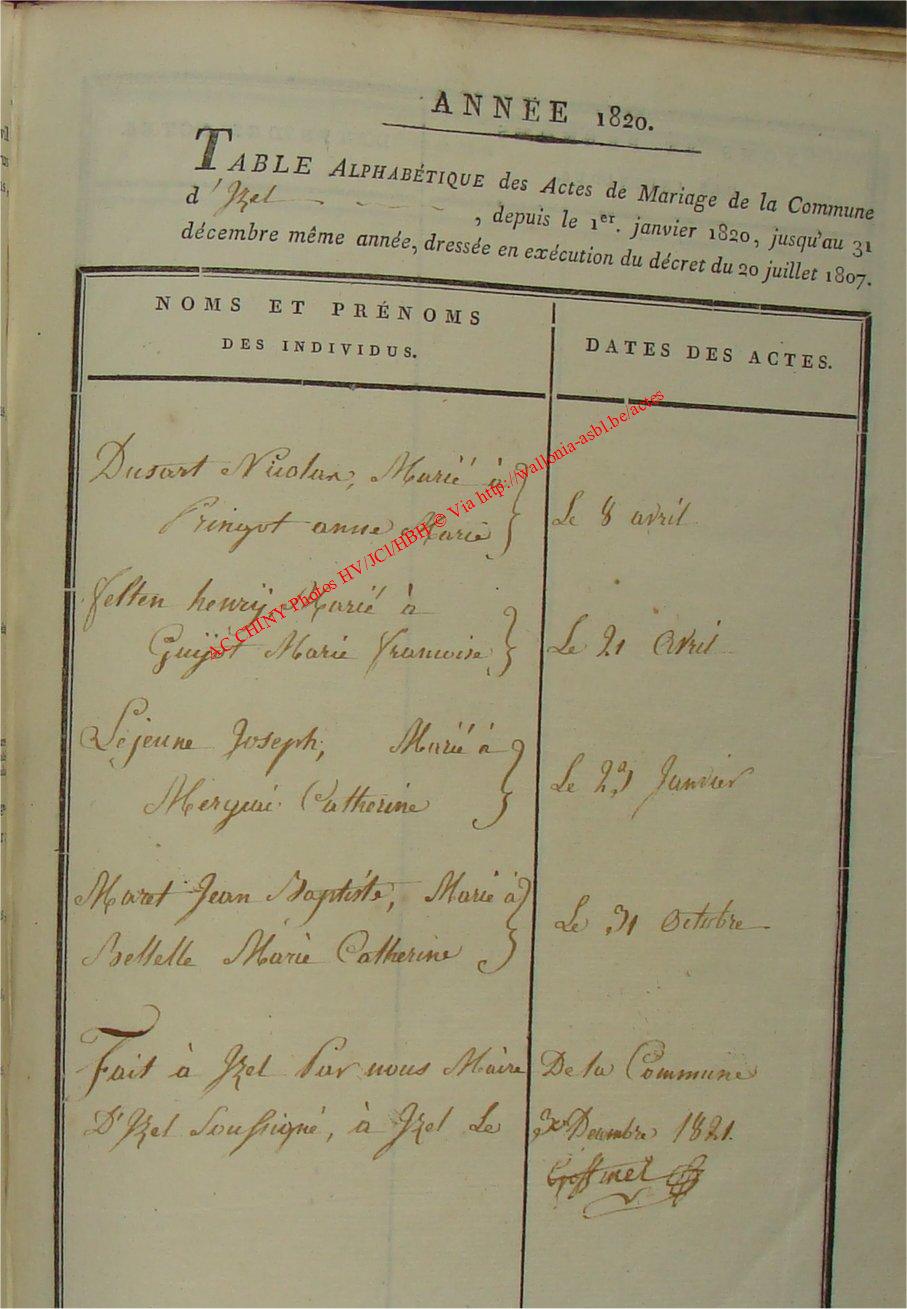 ANNÉE 1820.
TABLE ALPHABÉTIQUE des Actes de Mariage de la Commune
d' Izel , depuis le 1er. janvier 1820, jusqu'au 31
décembre même année, dressée en exécution du décret du 20 juillet 1807.
NOMS ET PRÉNOMS
DES INDIVIDUS.
DATES DES ACTES.
Dusart Nicolas, Marié à
Pringot anne Marie
Le 8 avril
felten henry, Marié à
Guÿot Marie francoise
Le 21 Avril
Lejeune Joseph, Marié à
Merguai Catherine
Le Janvier
Maret Jean Baptiste, Marié à
Bellelle Marie Catherine
Le 31 Octobre
Fait à Izel Par nous Maire De la Commune
D'Izel Soussigné, à Izel Le Decembre 1821.
AC CHINY Photos HV/JCl/HBH © Via http://wallonia-asbl.be/actes